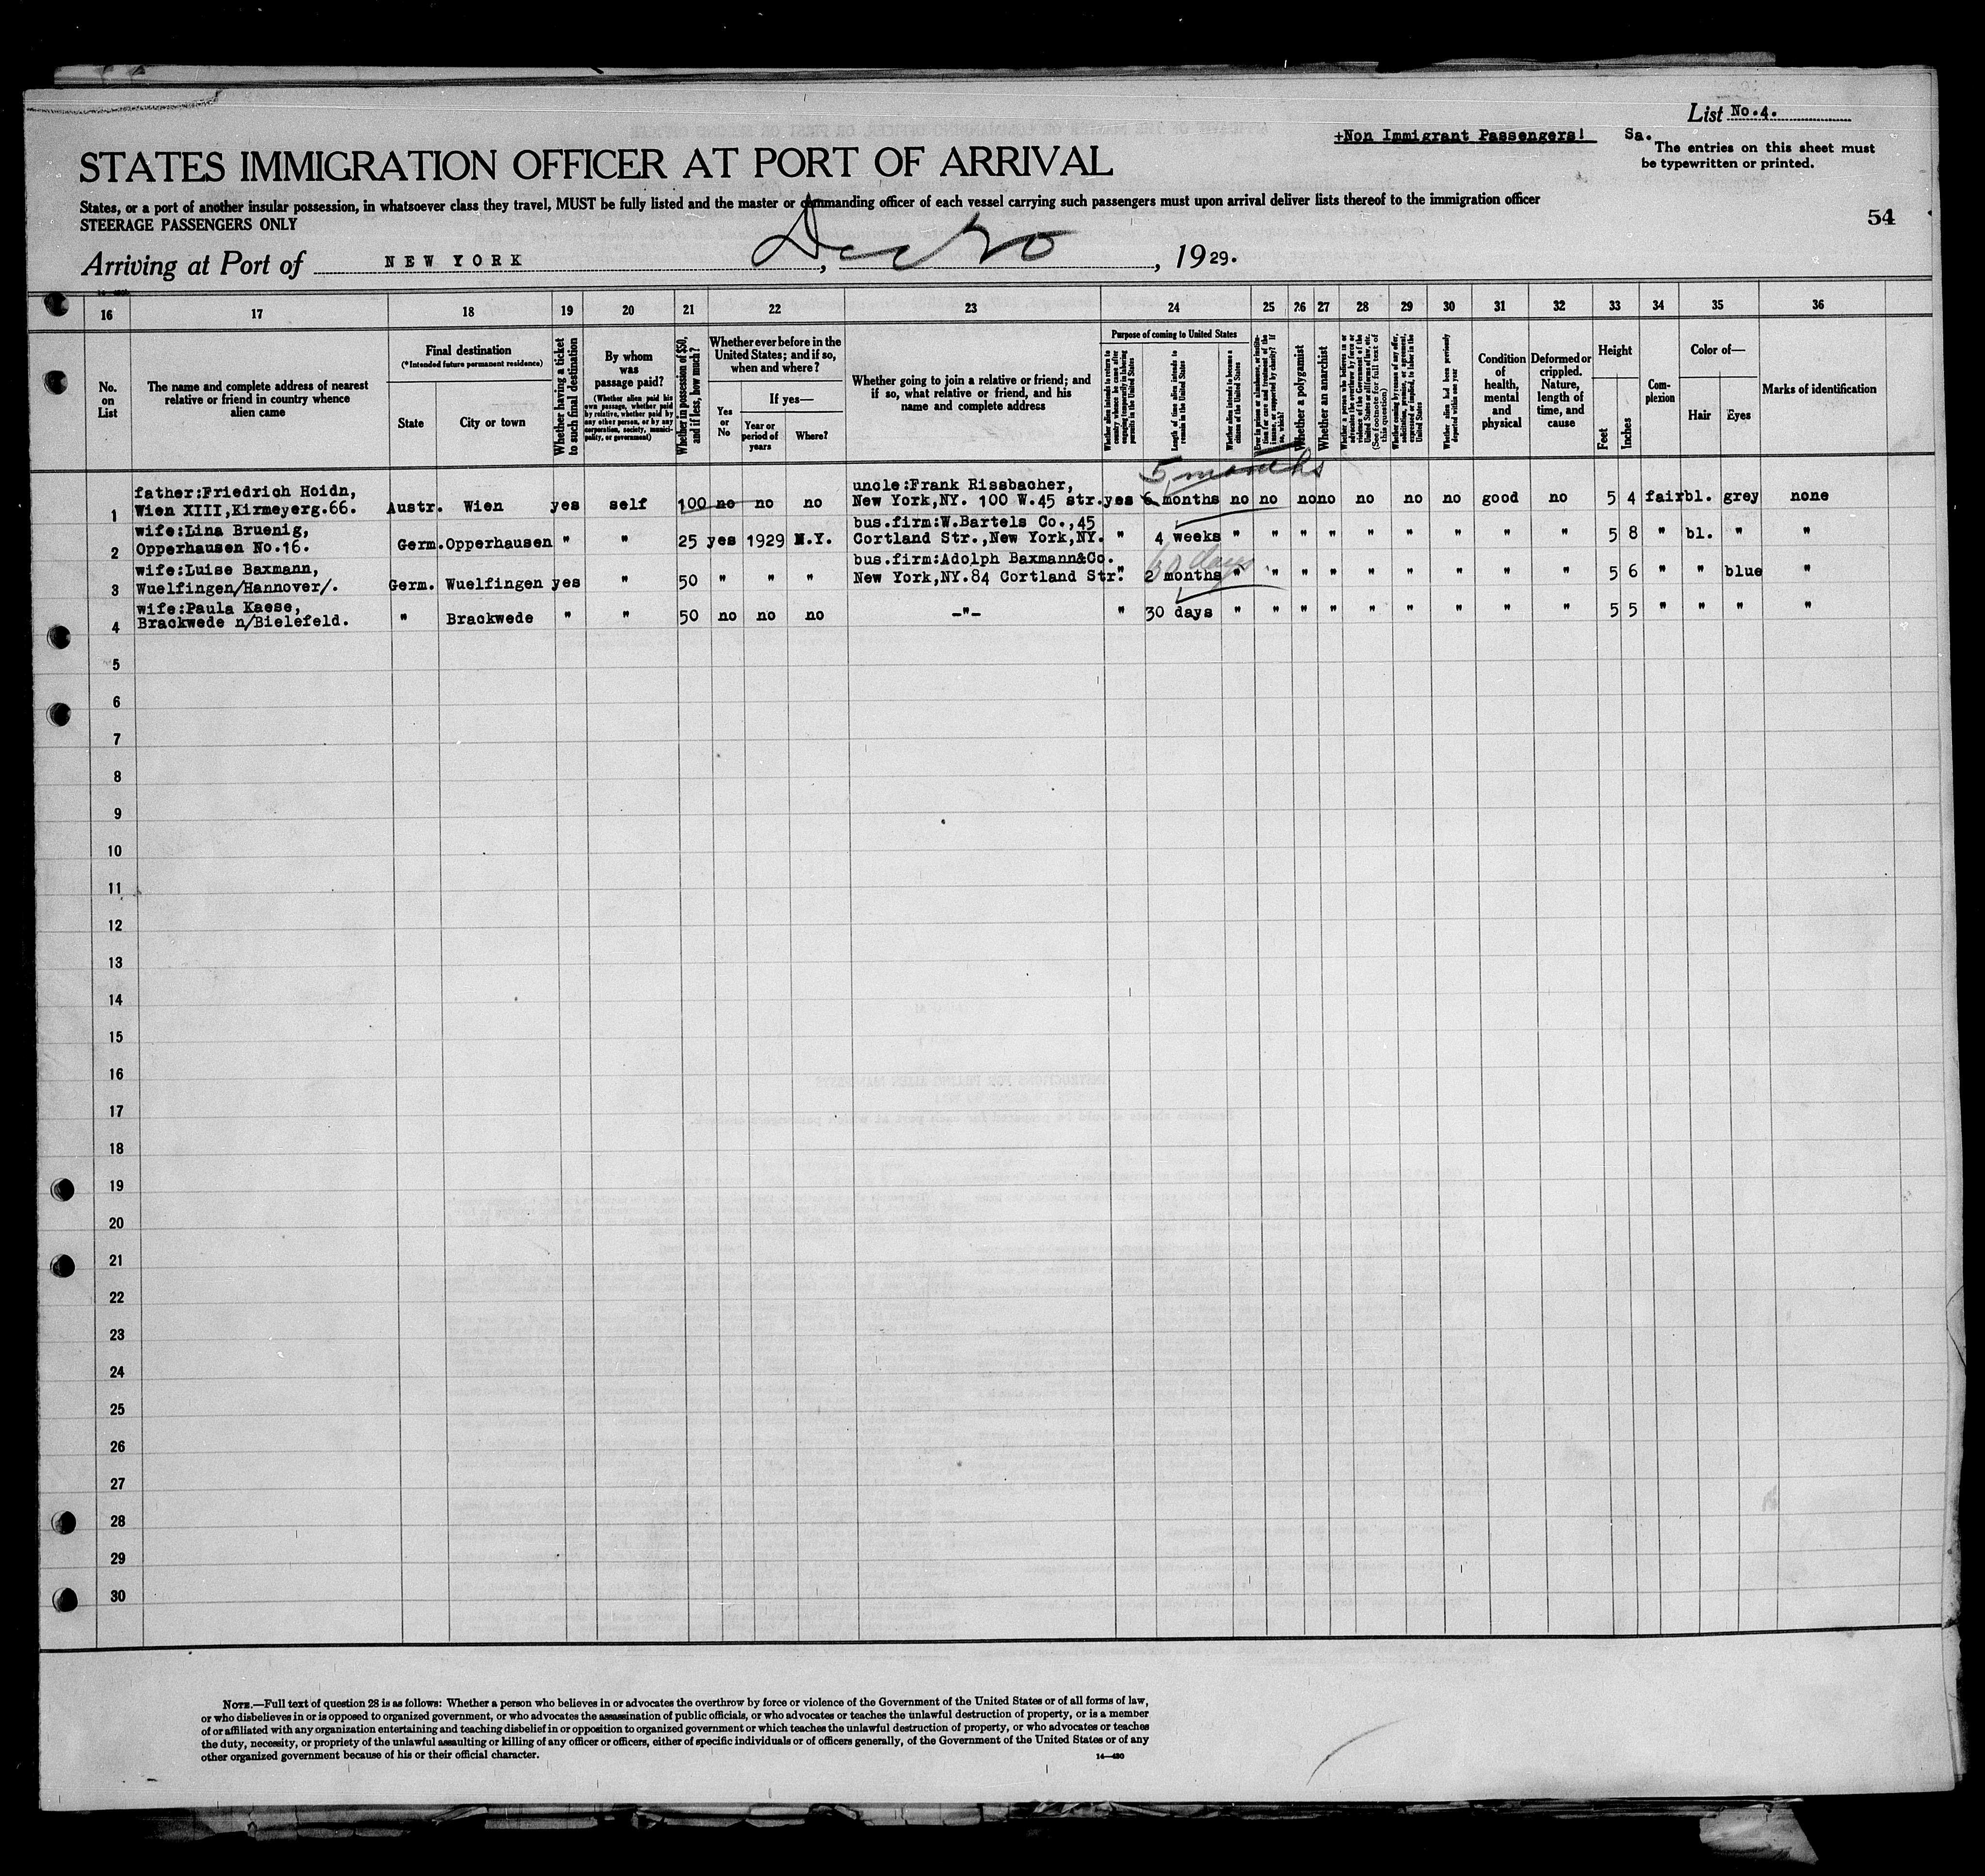 List No.4.
+Non Immigrant Passengers! Sa.
The entries on this sheet must
be typewritten or printed.
STATES IMMIGRATION OFFICER AT PORT OF ARRIVAL
States, or a port of another insular possession, in whatsoever class they travel, MUST be fully listed and the master or commanding officer of each vessel carrying such passengers must upon arrival deliver lists thereof to the immigration officer
STEERAGE PASSENGERS ONLY
54
Arriving at Port of NEW YORK, Dec 20, 1929.
16 17 18 19 20 21 22 23 24 25 26 27 28 29 30 31 32 33 34 35 36
No. on List
The name and complete address of nearest relative or friend in country whence alien came
Final destination
(*Intended future permanent residence)
State
City or town
Whether having a ticket to such final destination
By whom was passage paid?
(Whether alien paid his own passage, whether paid by relative, whether paid by any other person, or by any corporation, society, municipality, or government)
Whether in possession of $50, and if less, how much?
Whether ever before in the United States; and if so, when and where?
Yes or No
If yes—
Year or period of years
Where?
Whether going to join a relative or friend; and if so, what relative or friend, and his name and complete address
Purpose of coming to United States
Whether alien intends to return to country whence he came after engaging temporarily in laboring pursuits in the United States
Length of time alien intends to remain in the United States
Whether alien intends to become a citizen of the United States
Ever in prison or almshouse, or institution for care and treatment of the insane, or supported by charity? If so, which?
Whether a polygamist
Whether an anarchist
Whether a person who believes in or advocates the overthrow by force or violence of the Government of the United States or all forms of law, etc. (See footnote for full text of this question)
Whether coming by reason of any offer, solicitation, promise, or agreement, expressed or implied, to labor in the United States
Whether alien had been previously deported within one year
Condition of health, mental and physical
Deformed or crippled. Nature, length of time, and cause
Height
Feet
Inches
Complexion
Color of—
Hair
Eyes
Marks of identification
5 months
1 father:Friedrich Hoidn, Wien XIII,Kirmeyerg.66. Austr. Wien yes self 100 no no no uncle:Frank Rissbacher, New York,NY. 100 W.45 str. yes 6 months no no no no no no no good no 5 4 fair bl. grey none
2 wife:Lina Bruenig, Opperhausen No.16. Germ. Opperhausen " " 25 yes 1929 N.Y. bus.firm:W.Bartels Co.,45 Cortland Str.,New York,NY. " 4 weeks " " " " " " " " " 5 8 " bl. " "
60 days
3 wife:Luise Baxmann, Wuelfingen/Hannover/. Germ. Wuelfingen yes " 50 " " " bus.firm:Adolph Baxmann&Co. New York,NY.84 Cortland Str. " 2 months " " " " " " " " " 5 6 " " blue "
4 wife:Paula Kaese, Brackwede n/Bielefeld. " Brackwede " " 50 no no no -"- " 30 days " " " " " " " " " 5 5 " " " "
5
6
7
8
9
10
11
12
13
14
15
16
17
18
19
20
21
22
23
24
25
26
27
28
29
30
NOTE.—Full text of question 28 is as follows: Whether a person who believes in or advocates the overthrow by force or violence of the Government of the United States or of all forms of law,
or who disbelieves in or is opposed to organized government, or who advocates the assassination of public officials, or who advocates or teaches the unlawful destruction of property, or is a member
of or affiliated with any organization entertaining and teaching disbelief in or opposition to organized government or which teaches the unlawful destruction of property, or who advocates or teaches
the duty, necessity, or propriety of the unlawful assaulting or killing of any officer or officers, either of specific individuals or of officers generally, of the Government of the United States or of any
other organized government because of his or their official character.
14—430